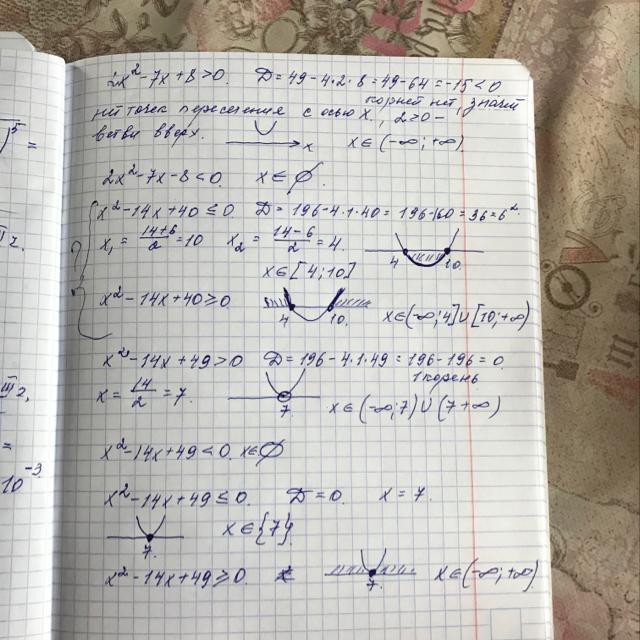 2x²-7x+8>0. D=49-4·2·8=49-64=-15<0
корней нет, значит
нет точек пересечения с осью X, 2>0-
ветви вверх. x x∈(-∞;+∞)
2x²-7x-8<0. x∈∅.
x²-14x+40≤0. D=196-4·1·40=196-160=36=6².
x₁=\frac{14+6}{2}=10 x₂=\frac{14-6}{2}=4. 4 10.
x∈[4;10]
x²-14x+40≥0. 4 10. x∈(-∞;4]∪[10;+∞)
x²-14x+49>0 D=196-4·1·49=196-196=0.
1 корень
x=\frac{14}{2}=7. 7. x∈(-∞;7)∪(7+∞)
x²-14x+49<0. x∈∅
x²-14x+49≤0. D=0. x=7.
7. x∈{7}.
x²-14x+49≥0. 7. x∈(-∞;+∞)
=
=
10⁻³